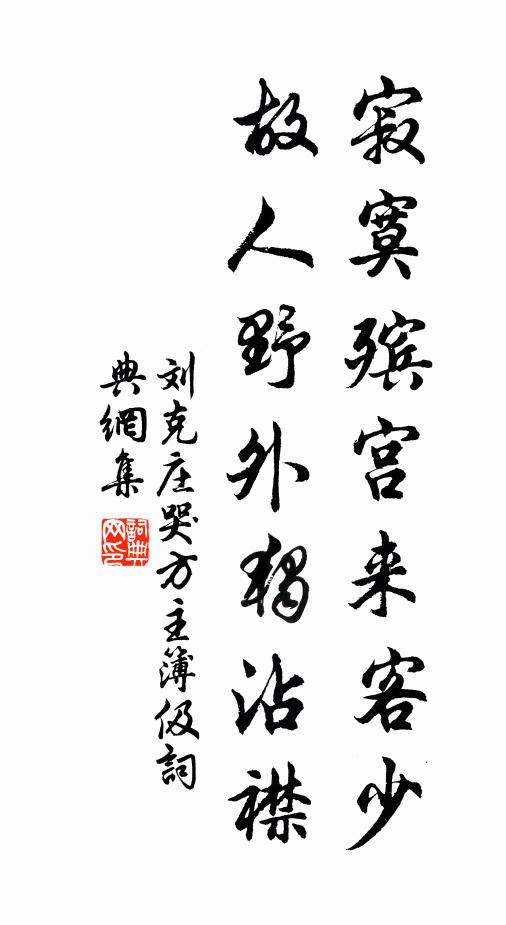 寂寞殡宫来客少
故人野外独沾襟
刘克庄哭方主簿伋詞
典網集
詞典网印